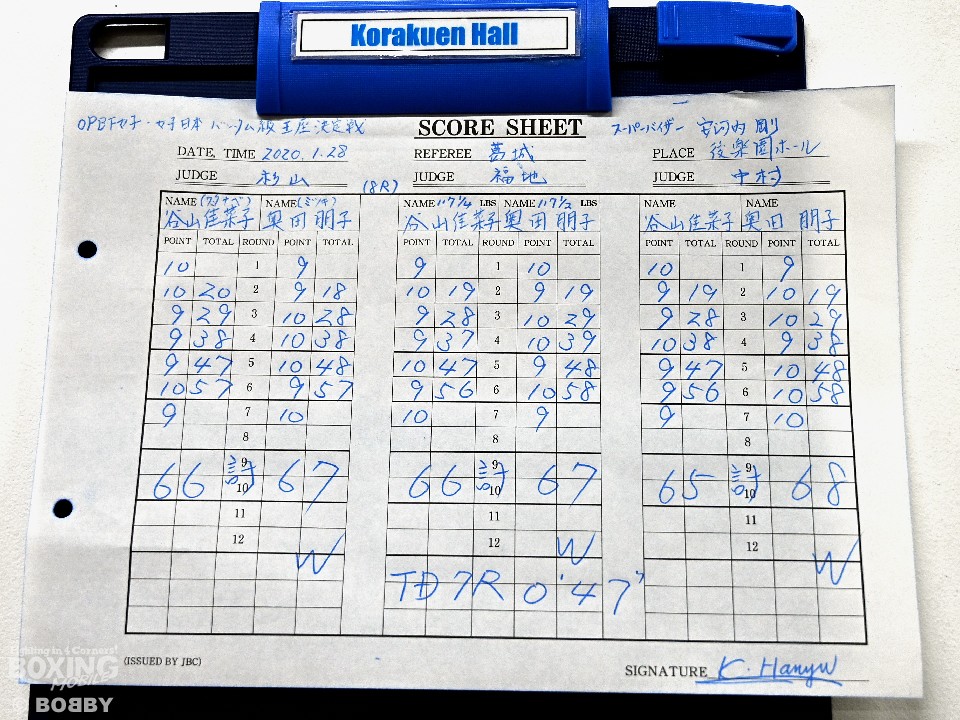 Korakuen Hall
OPBF女子・女子日本 バンタム級王座決定戦 SCORE SHEET スーパーバイザー 安河内 剛
DATE, TIME 2020.1.28 REFEREE 葛城 PLACE 後楽園ホール
JUDGE 杉山 (8R) JUDGE 福地 JUDGE 中村
NAME (ワタナベ) NAME (ミツキ) NAME 117 1/4 LBS NAME 117 1/2 LBS NAME NAME
谷山佳菜子 奥田 朋子 谷山佳菜子 奥田 朋子 谷山佳菜子 奥田 朋子
POINT TOTAL ROUND POINT TOTAL POINT TOTAL ROUND POINT TOTAL POINT TOTAL ROUND POINT TOTAL
10 1 9 9 1 10 10 1 9
10 20 2 9 18 10 19 2 9 19 9 19 2 10 19
9 29 3 10 28 9 28 3 10 29 9 28 3 10 29
9 38 4 10 38 9 37 4 10 39 10 38 4 9 38
9 47 5 10 48 10 47 5 9 48 9 47 5 10 48
10 57 6 9 57 9 56 6 10 58 9 56 6 10 58
9 7 10 10 7 9 9 7 10
8 8 8
9 9 9
66 計 67 66 計 67 65 計 68
10 10 10
11 11 11
12 12 12
W W W
TD 7R 0'47"
(ISSUED BY JBC) SIGNATURE K. Hanyu
Fighting in 4 Corners!
BOXING
MOBILES
© BOBBY